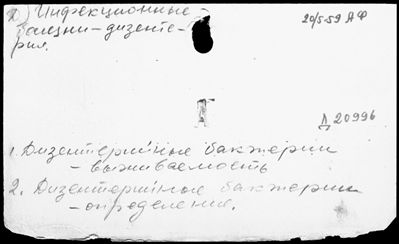 2) Инфекционные
болезни — дизенте-
рия.
20/5-59 АФ
Д 20996
1. Дизентерийные бактерии
— выживаемость
2. Дизентерийные бактерии
— определение.